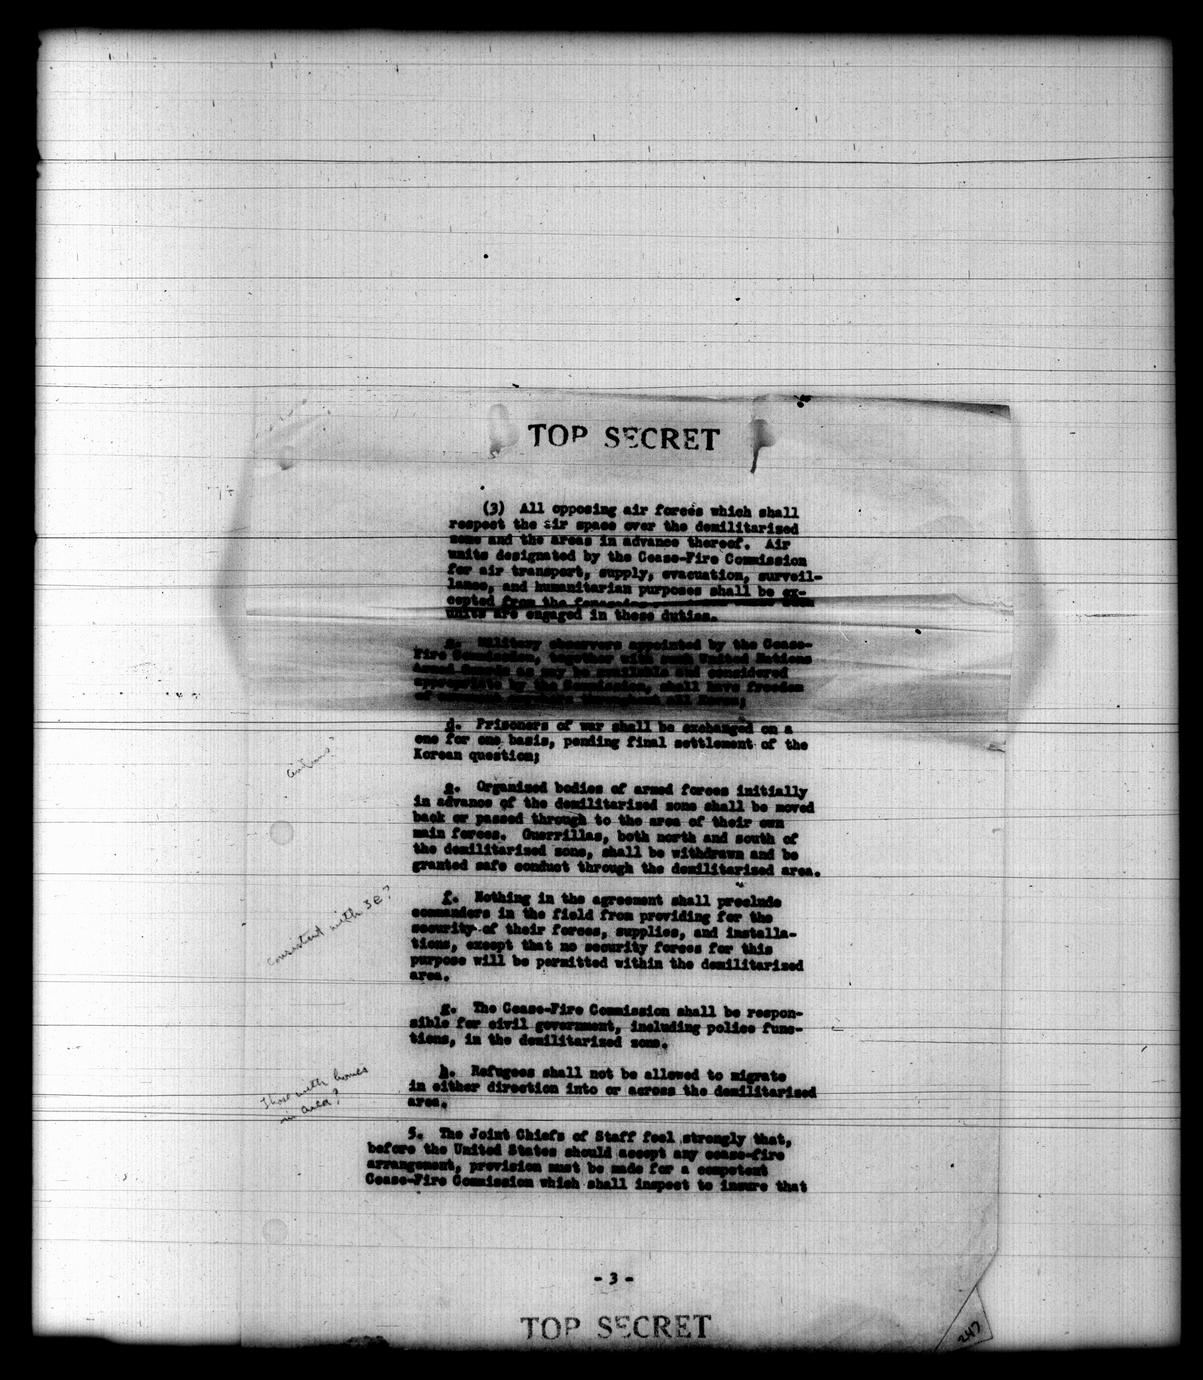 TOP SECRET
(3) All opposing air forces which shall
respect the air space over the demilitarized
zone and the areas in advance thereof. Air
units designated by the Cease-Fire Commission
for air transport, supply, evacuation, surveil-
lance, and humanitarian purposes shall be ex-
cepted from the
units are engaged in these duties.
Military observers appointed by the Cease-
Fire Commission, together with such United Nations
Armed Guards as may be available and considered
appropriate by the Commission, shall have freedom
of all Korea;
d. Prisoners of war shall be exchanged on a
one for one basis, pending final settlement of the
Korean question;
e. Organized bodies of armed forces initially
in advance of the demilitarized zone shall be moved
back or passed through to the area of their own
main forces. Guerrillas, both north and south of
the demilitarized zone, shall be withdrawn and be
granted safe conduct through the demilitarized area.
consistent with 3E?
f. Nothing in the agreement shall preclude
commanders in the field from providing for the
security of their forces, supplies, and installa-
tions, except that no security forces for this
purpose will be permitted within the demilitarized
area.
g. The Cease-Fire Commission shall be respon-
sible for civil government, including police func-
tions, in the demilitarized zone.
Those with homes
in area?
h. Refugees shall not be allowed to migrate
in either direction into or across the demilitarized
area.
5. The Joint Chiefs of Staff feel strongly that,
before the United States should accept any cease-fire
arrangement, provision must be made for a competent
Cease-Fire Commission which shall inspect to insure that
- 3 -
TOP SECRET
247